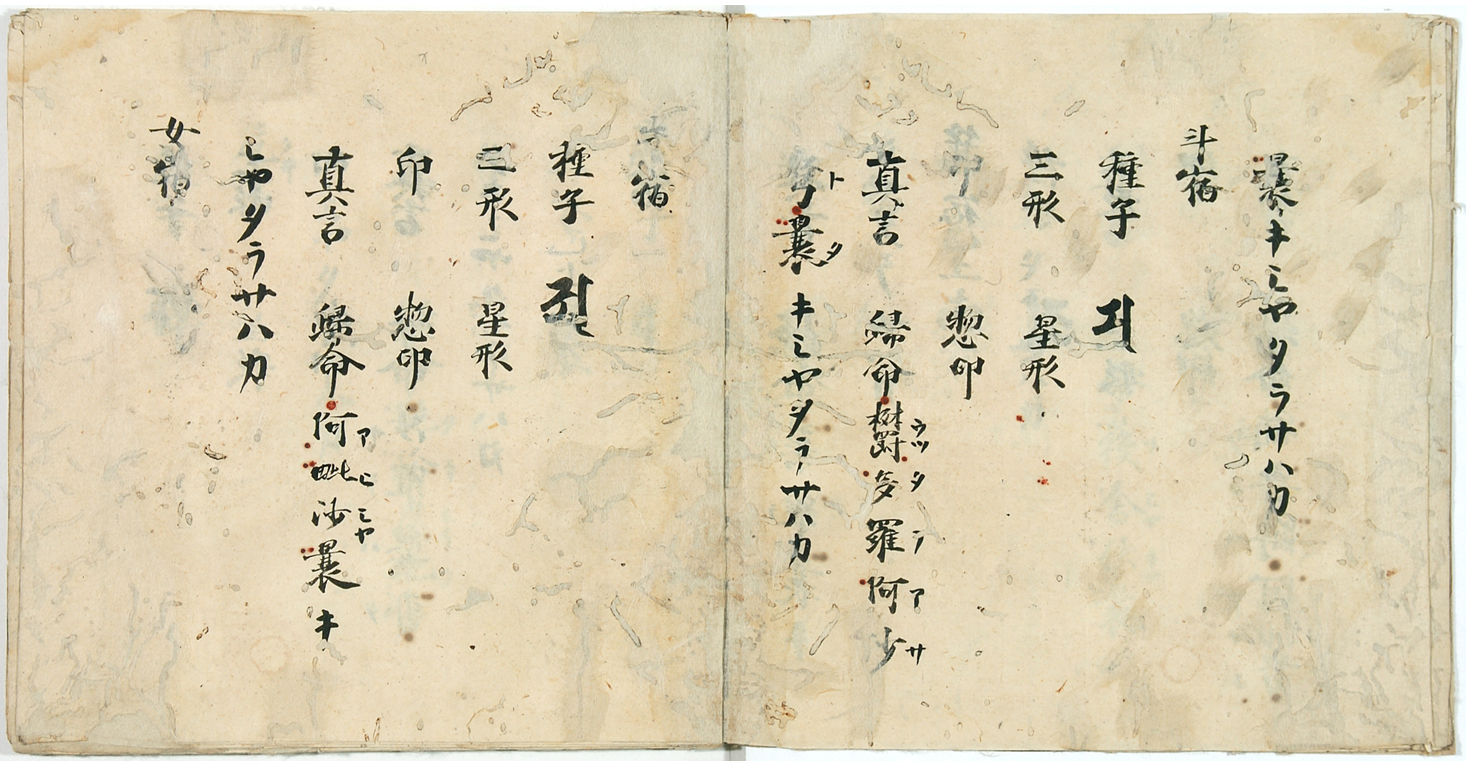 曩キミヤタラサハカ
斗宿
種子
三形　星形
惣印
真言　歸命欝多羅阿沙
ウツタラアサ
曩　キミヤタラサハカ
宿
種子
三形　星形
印　惣印
真言　歸命阿毗沙曩キ
アヒミヤ
ミヤタラサハカ
女宿